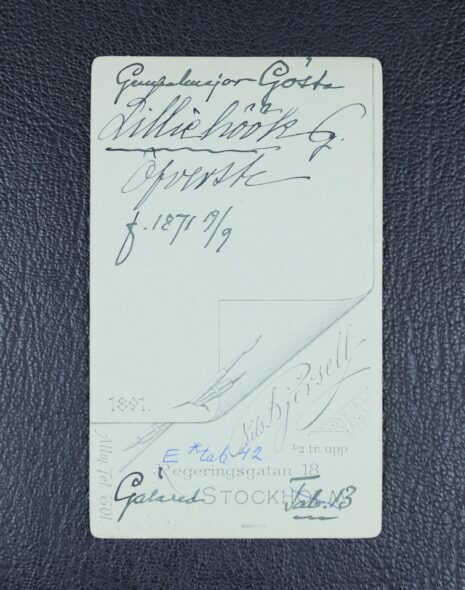 Generalmajor Gösta
Lilliehöök G.
Öfverste
f. 1871 9/9
1891.
Nils Björsell
Allm. Tel. 5501
½ tr. upp
E *tab 42
Regeringsgatan 18
Gälared Tab. 13
STOCKHOLM